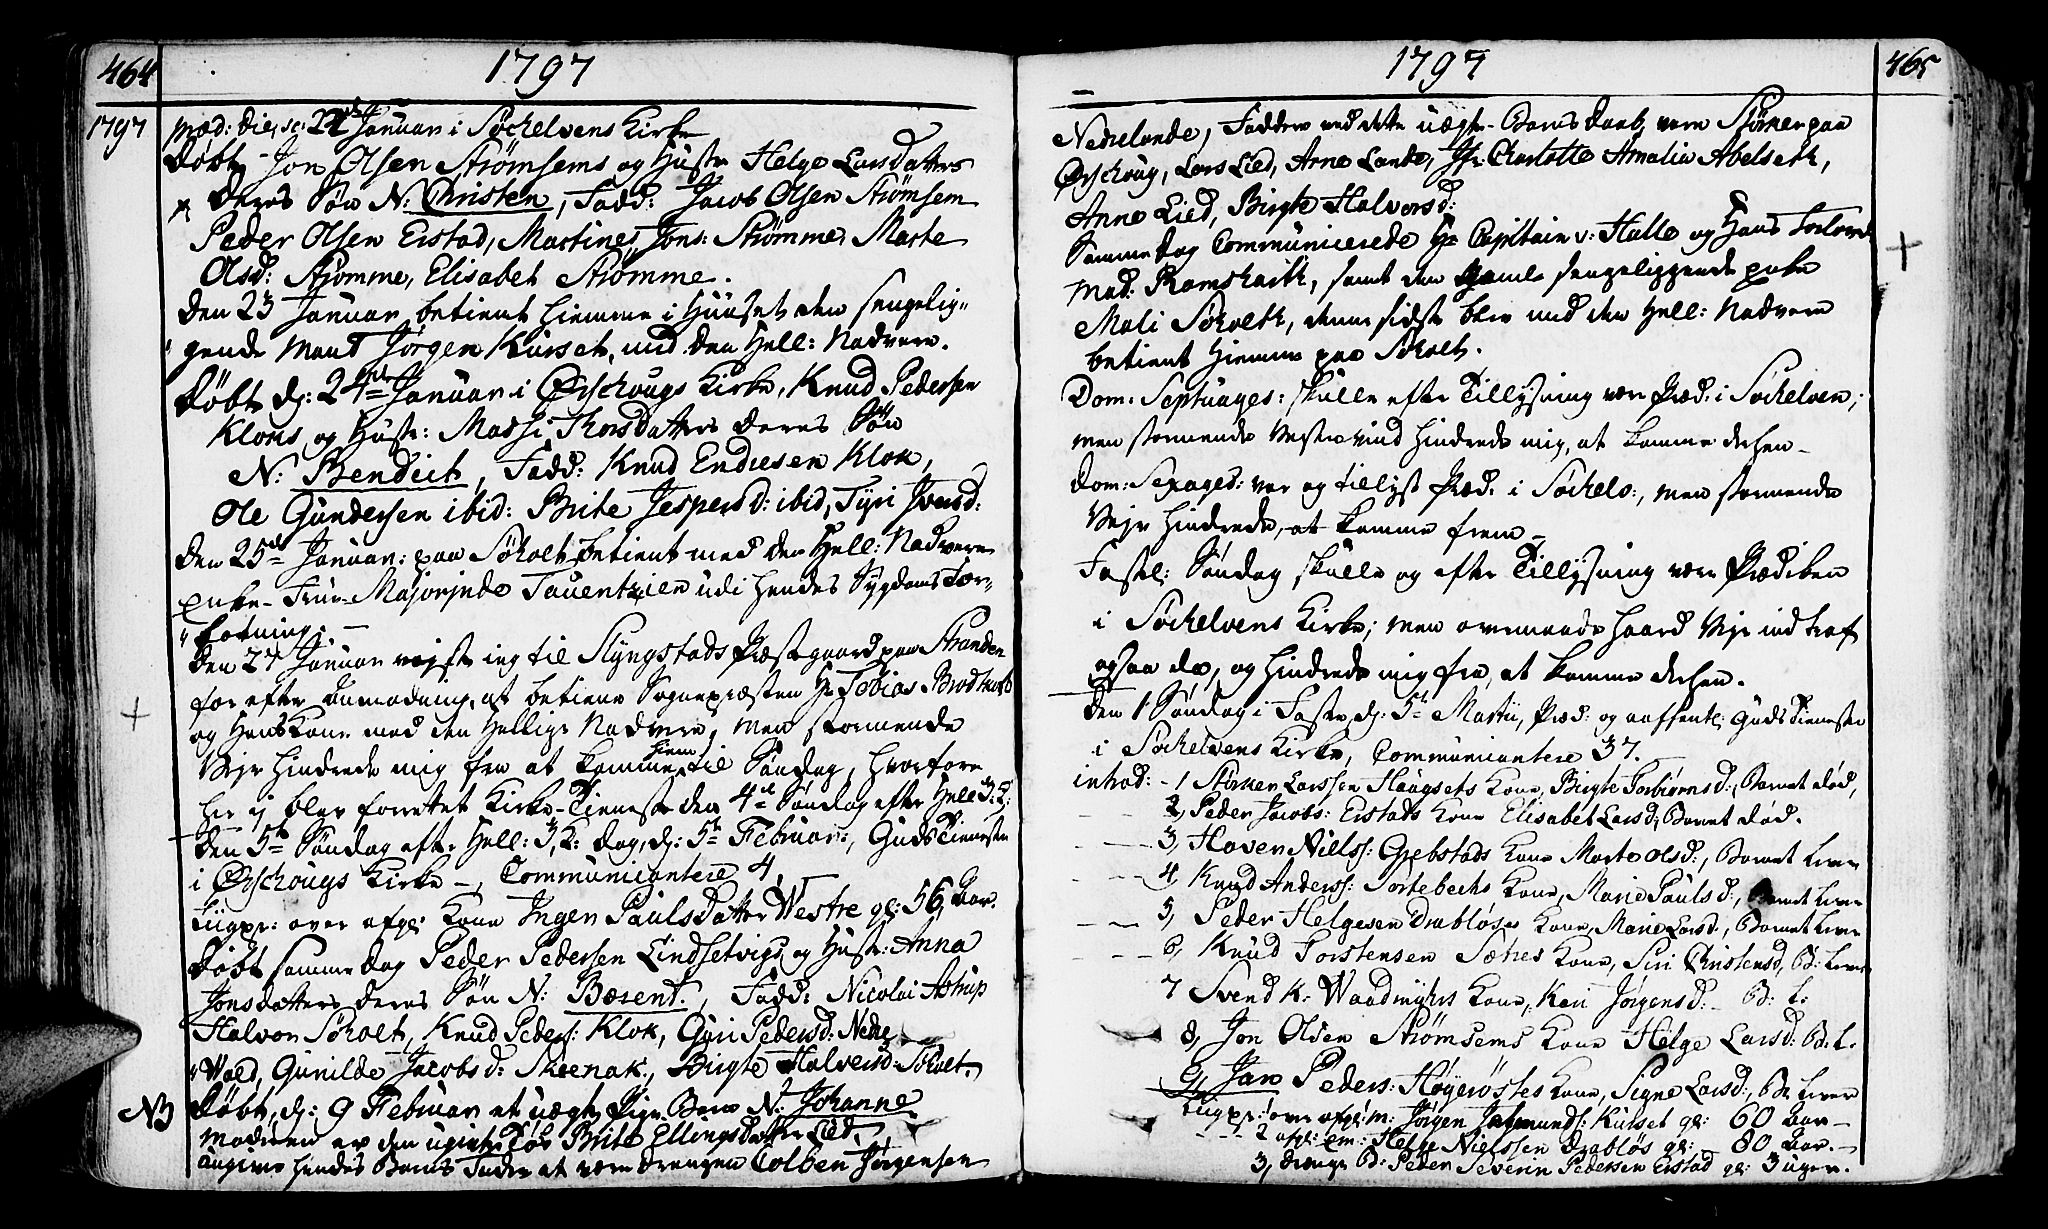 464
1797
1797
Præd: die, sc: 22de Januar i Söckelvens Kirke
Döbt - Jon Olsen Strömsems og Hustr Helge Larsdatters
Deres Sön N: Christen, Fadd: Jacob Olsen Strömsem
Peder Olsen Erstad, Martine Jons: Strömme, Marte
Olsd: Strömme, Elisabet Strömme.
Den 23 Januar betient hiemme i Huuset den sengelig-
gende Mand Jörgen Kurset, med den Hell: Nadvere.
Döbt d: 24de Januar i Örschougs Kirke, Knud Pedersen
Kloks og Hustr: Madsi Thorsdatters Deres Sön
N: Bendict, Fadd: Knud Endresen Klok,
Ole Gundersen ibid: Brite Jespersd: ibid, Tyri Iversd:
Den 25de Januar: paa Söholt betient med den Hell: Nadvere
enke- Frue- Majorjnde Tauentzien udi hendes Sygdoms For-
fatning. -
Den 27 Januar rejste ieg til Slyngstads Præstegaard paa Stranden
for efter Anmodning, at betiene Sognepræsten Hr Tobias Brodkorb
og Hans Kone med den Hellige Nadvere, men stormende
Vejr hindrede mig fra at komme hiem til Söndag, hvorfore
her ej blev forrettet Kirke-Tieneste den 4de Söndag efter Hell: 3: K:
Den 5te Söndag eft. Hell: 3, K: dag, d: 5te Februar:, Guds Tieneste
i Örschougs Kirke -, Communicantere 4,
Liigpr: over afg: Kone Ingen Paulsdatter Westre gl: 56 Aar.
Döbt samme dag Peder Pedersen Lindsetvigs og Hustr: Anna
Jonsdatters deres Sön N: Bæsent., Fadd: Nicolai Astrup
Halvor Söholt, Knud Peders: Klok, Gyri Pedersd: Nedre
Wold, Gunilde Jacobsd: Skeenak, Birgte Halversd: Söholt.
NB Döbt, d: 9 Februar et uægte Pige Barn N: Johanne
Moderen er den ugivte Tös Brite Ellingsdatter Lied,
angivne hendes Barns Fader at være drengen Colben Jörgensen
1797
465
Nedrelande, Faddere ved dette uægte Barns daab, vare Störker paa
Örschoug, Lars Lied, Arne Lande, Jfr: Charlotte Amalia Abelseth,
Anne Lied, Birgte Halvorsd:
Samme dag Communicerede Hr Capitain v: Halle og Hans Forlovede
Mad: Ramshardt, samt den gamle sengeliggende enke
Mali Söholt, denne sidste blev med den Hell: Nadvere
betient hiemme paa Söholt.
Dom: Septuages: skulle efter Tillysning være Præd: i Söckelven;
men stormende Vester vind hindrede mig, at komme derhen -
Dom: Sexages: var og tillyst Præd: i Söckelv:, men stormende
Vejr hindrede, at komme frem -
Fastel: Söndag skulle og efter Tillysning være Prædiken
i Söckelvens Kirke; men overmaade haard Vejr indtraf
ogsaa da, og hindrede mig fra, at komme derhen.
Den 1 Söndag i Faste, d: 5te Martii, Præd: og aaffentl: Guds Tieneste
i Söckelvens Kirke, Communicantere 37.
introd: - 1 Störker Larssen Haagsets Kone, Birgte Torbiörnsd:, Barnet död,
2, Peder Jacobs: Erstads Kone Elisabet Larsd: Barnet död.
3, Haven Nielss: Grebstads Kone Marte Olsd:, Barnet lever
4, Knud Anderss: Tortebechs Kone, Marie Paulsd:, Barnet lever
5, Peder Helgesen Drablöses Kone, Marie Larsd:, Barnet lever
6, Knud Torstensen Sætres Kone, Siri Christensd, B: lever
7 Svend K: Waadmyhrs Kone, Kari Jörgensd: B: l.
8, Jon Olsen Strömsems Kone Helge Larsd: B: l.
9, Jan Peders: Höyeröstes Kone, Signe Larsd:, B: lever
Liigpr: 1 over afg: m: Jörgen Jetmunds: Kurset gl: 60 Aar -
2 afg: em: Helge Nielssen Drablös gl: - 80 Aar. -
3, drenge B: Peder Severin Pedersen Erstad gl: 3 uger.